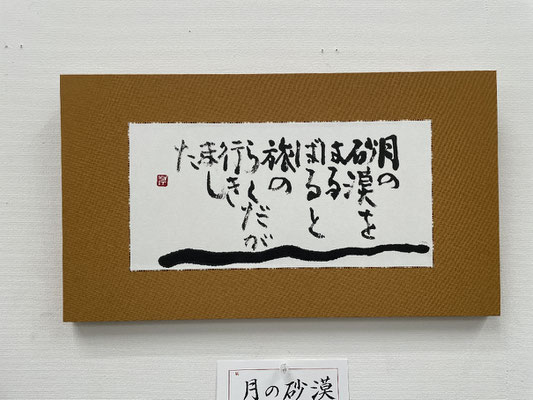 月の
砂漠を
はる
ばると
旅の
らくだが
行き
まし
た
月の砂漠